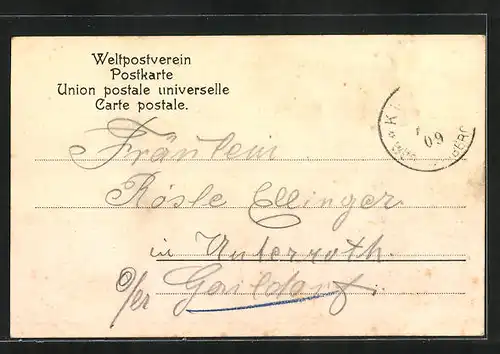 Weltpostverein
Postkarte
Union postale universelle
Carte postale.
09
Fräulein
Rösle Ellinger
in Unterroth.
O/er Gaildorf.